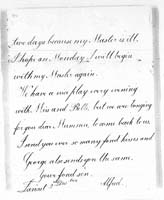 two days because my Master is ill.
I hope on Monday I will begin
with my Master again.
We have a nice play every evening
with Miss and Polly, but we are longing
for you dear Mamma, to come back to us.
I send you ever so many fond kisses and
George also sends you the same.
Your fond son,
Alfred.